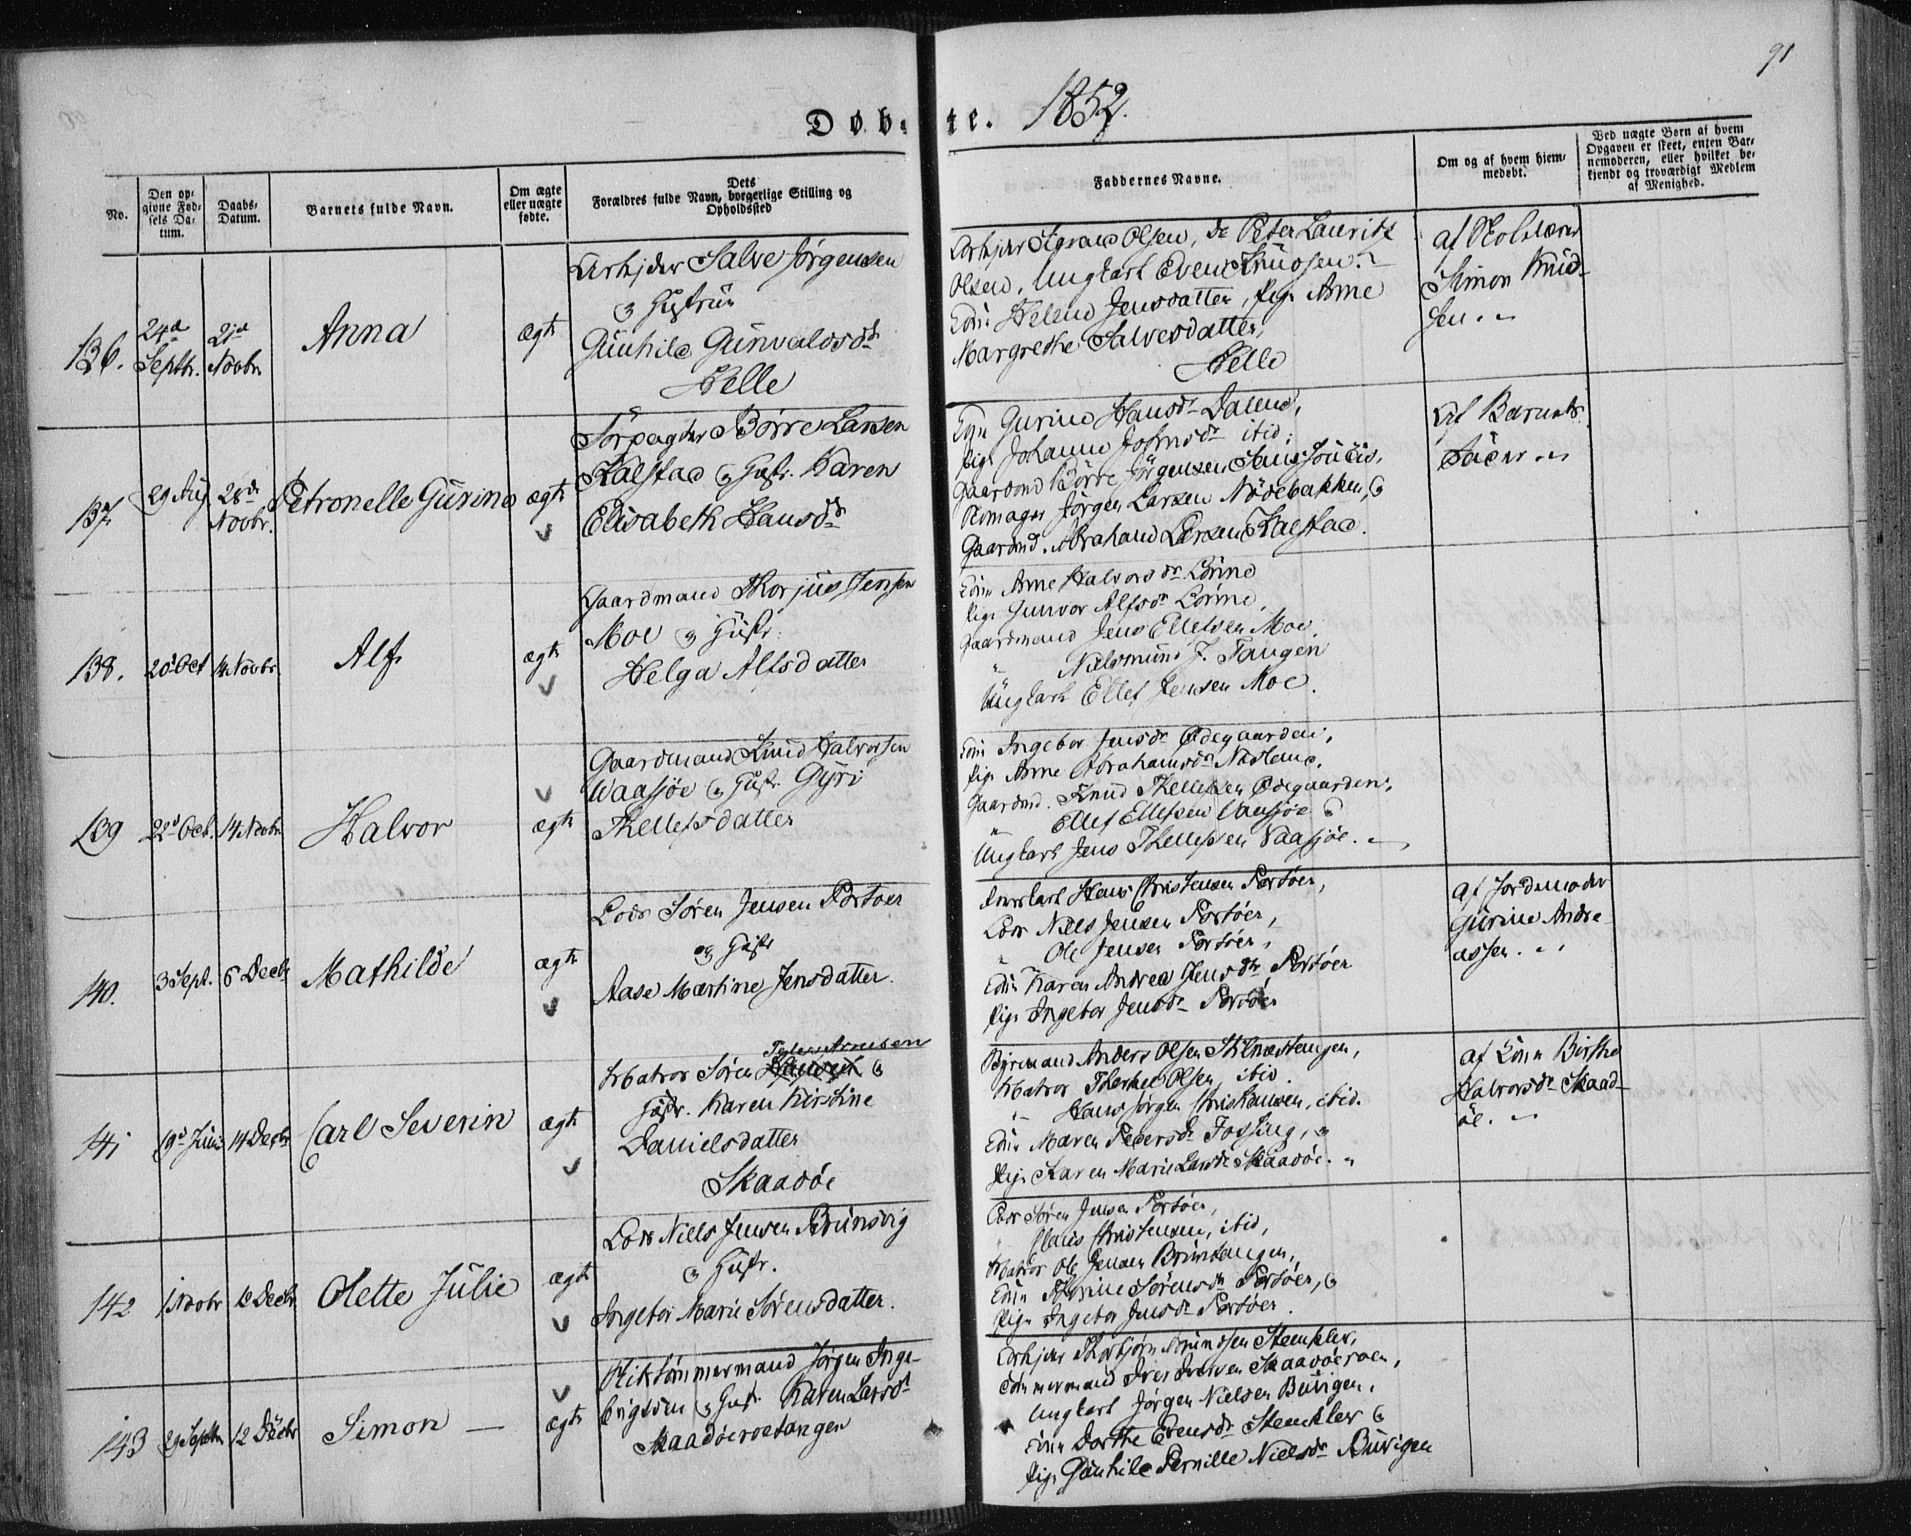 91
Døbte. 1852.
No.
Den opgivne Fødsels Datum.
Daabs-Datum.
Barnets fulde Navn.
Om ægte eller nægte fødte.
Dets Forældres fulde Navn, borgerlige Stilling og Opholdssted
Faddernes Navne.
Om og af hvem hjemmedøbt.
Ved nægte Børn af hvem Opgaven er skeet, enten Barnemoderen, eller hvilket bekjendt og troværdigt Medlem af Menighed.
136. 24d Septbr. 21d Novbr. Anna ægte
Arbejder Salve Jørgensen
og Hustrue
Gunhild Gunvaldsdr
Helle
Olsen, de Peter Laurits
Olsen, Ungkarl Even Knudsen.
Kone Helene Jensdatter, Pige Anne
Margrethe Salvesdatter,
Helle
af Skolelærer
Simon Knud-
sen.
137. 29 Aug 28de Novbr. Petronelle Gurine ægte
Børre Larsen
Kalstad og Hustr. Karen
Elisabeth Hansdr
Kone Gurine Hansdr Dalene,
Pige Johanne Johnsdr ibid.
Gaardmd Børre Jørgensen Sanssoucis,
Jørgen Larsen Nødebakken, og
Gaardmd. Abraham Larsen Kalstad.
Af Barnets
Fader
138. 20 Oct 14 Novbr. Alf. ægte
Gaardmand Thorjus Jensen
Moe og Hustr.
Helga Alfsdatter
Kone Anne Halvorsdr Lønne
Pige Gunvor Alfsdr Lønne,
Gaardmand Jens Ellefsen Moe,
" J. Tangen
Ungkarl Ellef Jensen Moe.
139 22d Oct. 14 Novbr. Halvor ægte
Gaardmand Knud Halvorsen
Waasjøe og Hustr. Gyri
Thellefsdatter
Kone Ingebor Jensdr Ødegaarden,
Pige Anne Abrahamsdr
Gaardmd. Knud Thellefsen Ødegaarden,
" Ellef Ellefsen Vaasjøe og
Ungkarl Jens Thellefsen Vaasjøe.
140. 3 Sept. 6 Decbr Mathilde ægte
Lods Søren Jensen Portøer
og Hustr
Aase Martine Jensdatter.
Ungkarl Hans Christensen Portøer,
Lods Niels Jensen Portøer,
" Ole Jensen Portøer,
Kone Karen Andrea Jensdr Portøer
Pige Ingebor Jensdr Portøer
af Jordemoder
Gurine Andre-
assen.
141 19d Juni 14 Decbr. Carl Severin ægte
Matros Søren Hansen og
Hustr. Karen Kirstine
Danielsdatter
Skaadøe
Anders Olsen Stilnæstangen,
Matros Olsen, ibid.
" Hans Jørgen Christensen, ibid.
Kone Maren Pedersdr Fossing, og
Pige Karen Marie Larsdr Skaadøe.
af Kone Birthe
Halvorsdr Skaad-
øe.
142 1 Novbr 12 Decbr. Olette Julie ægte
Lods Niels Jensen Brunsvig
og Hustr.
Ingebor Marie Sørensdatter.
Lods Søren Jensen Portøer,
" Claus Christensen, ibid,
Matros Ole Jensen Bruntangen,
Kone Thorine Sørensdr Portøer, og
Pige Ingebor Jensdr Portøer.
143 29 Septbr 12 Decbr Simon — ægte
Skibstømmermand Jørgen Inge-
brigtsen og Hustr. Karen Larsdr
Skaadøeroetangen
Arbejder Thorbjørn Amundsen Stenkler,
Tømmermand Iver Iversen Skaadøeroen,
Ungkarl Jørgen Nielsen Buvigen,
Kone Dorthe Evensdr Stenkler og
Pige Gunhild Pernille Nielsdr Buvigen